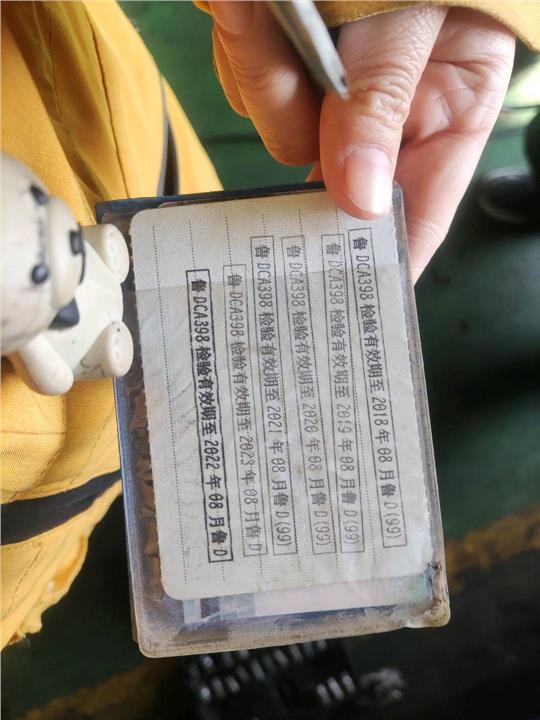 鲁DCA398 检验有效期至 2018年08月鲁D(99)
鲁DCA398 检验有效期至 2019年08月鲁D(99)
鲁DCA398 检验有效期至 2020年08月鲁D(99)
鲁DCA398 检验有效期至 2021年08月鲁D(99)
鲁DCA398 检验有效期至 2023年08月鲁D
鲁DCA398 检验有效期至 2022年08月鲁D